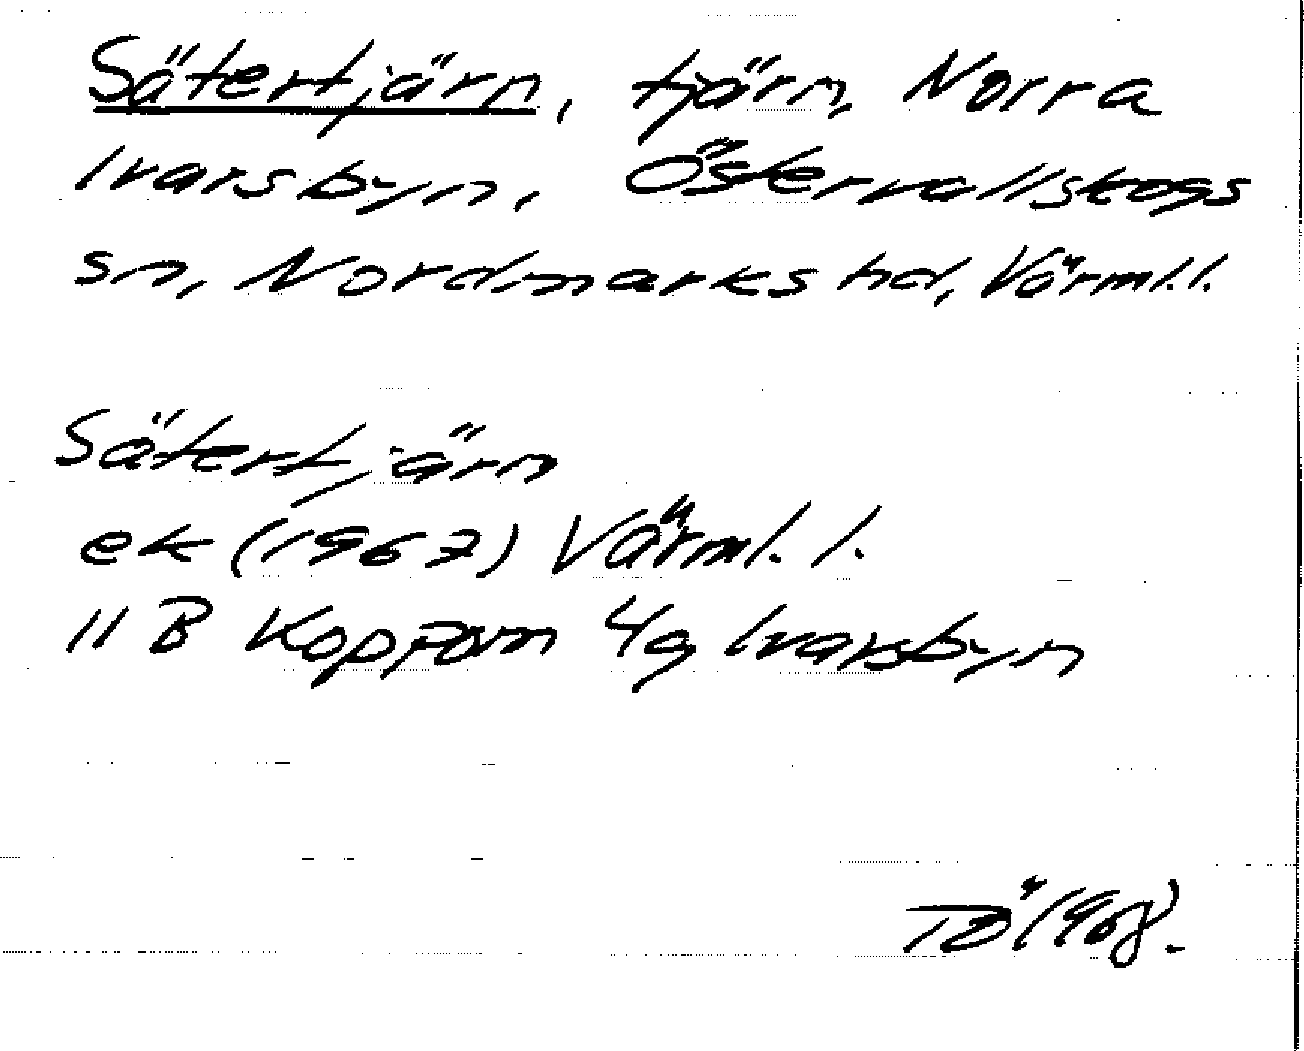 Sätertjärn, tjärn, Norra
Ivarsbyn, Östervallskogs
sn, Nordmarks hd, Värml.l.
Sätertjärn
ek (1967) Värml. l.
11 B Koppom 4g Ivarsbyn
TÖ 1968.